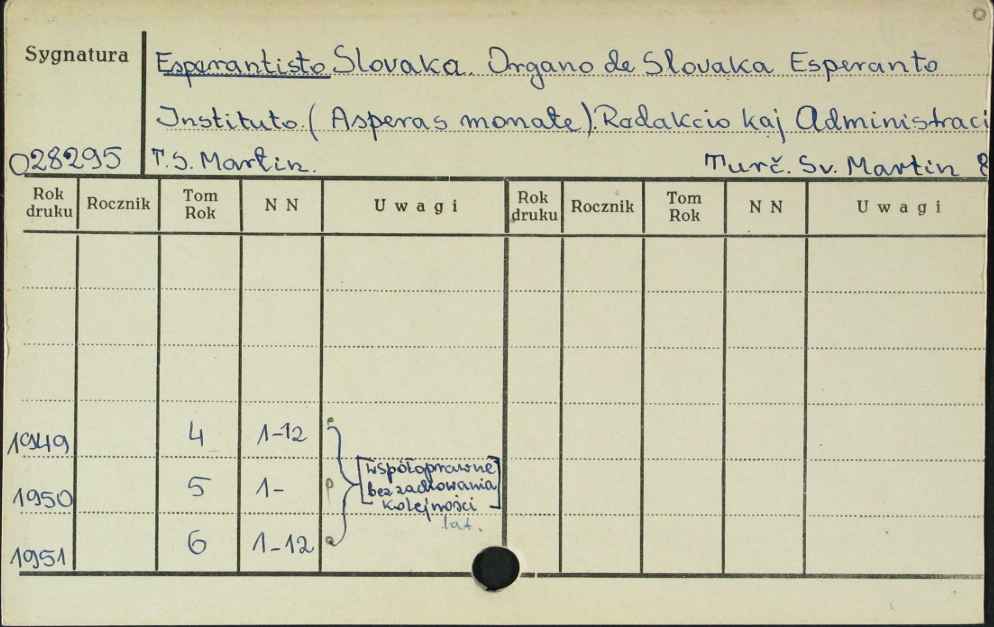 Sygnatura
Esperantisto Slovaka. Organo de Slovaka Esperanto
Instituto. (Asperas monate). Redakcio kaj Administraci
028295 T.S. Martin. Turč. Sv. Martin
Rok druku Rocznik Tom Rok N N Uwagi Rok druku Rocznik Tom Rok N N Uwagi
1949 4 1-12
[współoprawne
bez zachowania
1950 5 1-
kolejności]
lat.
1951 6 1-12